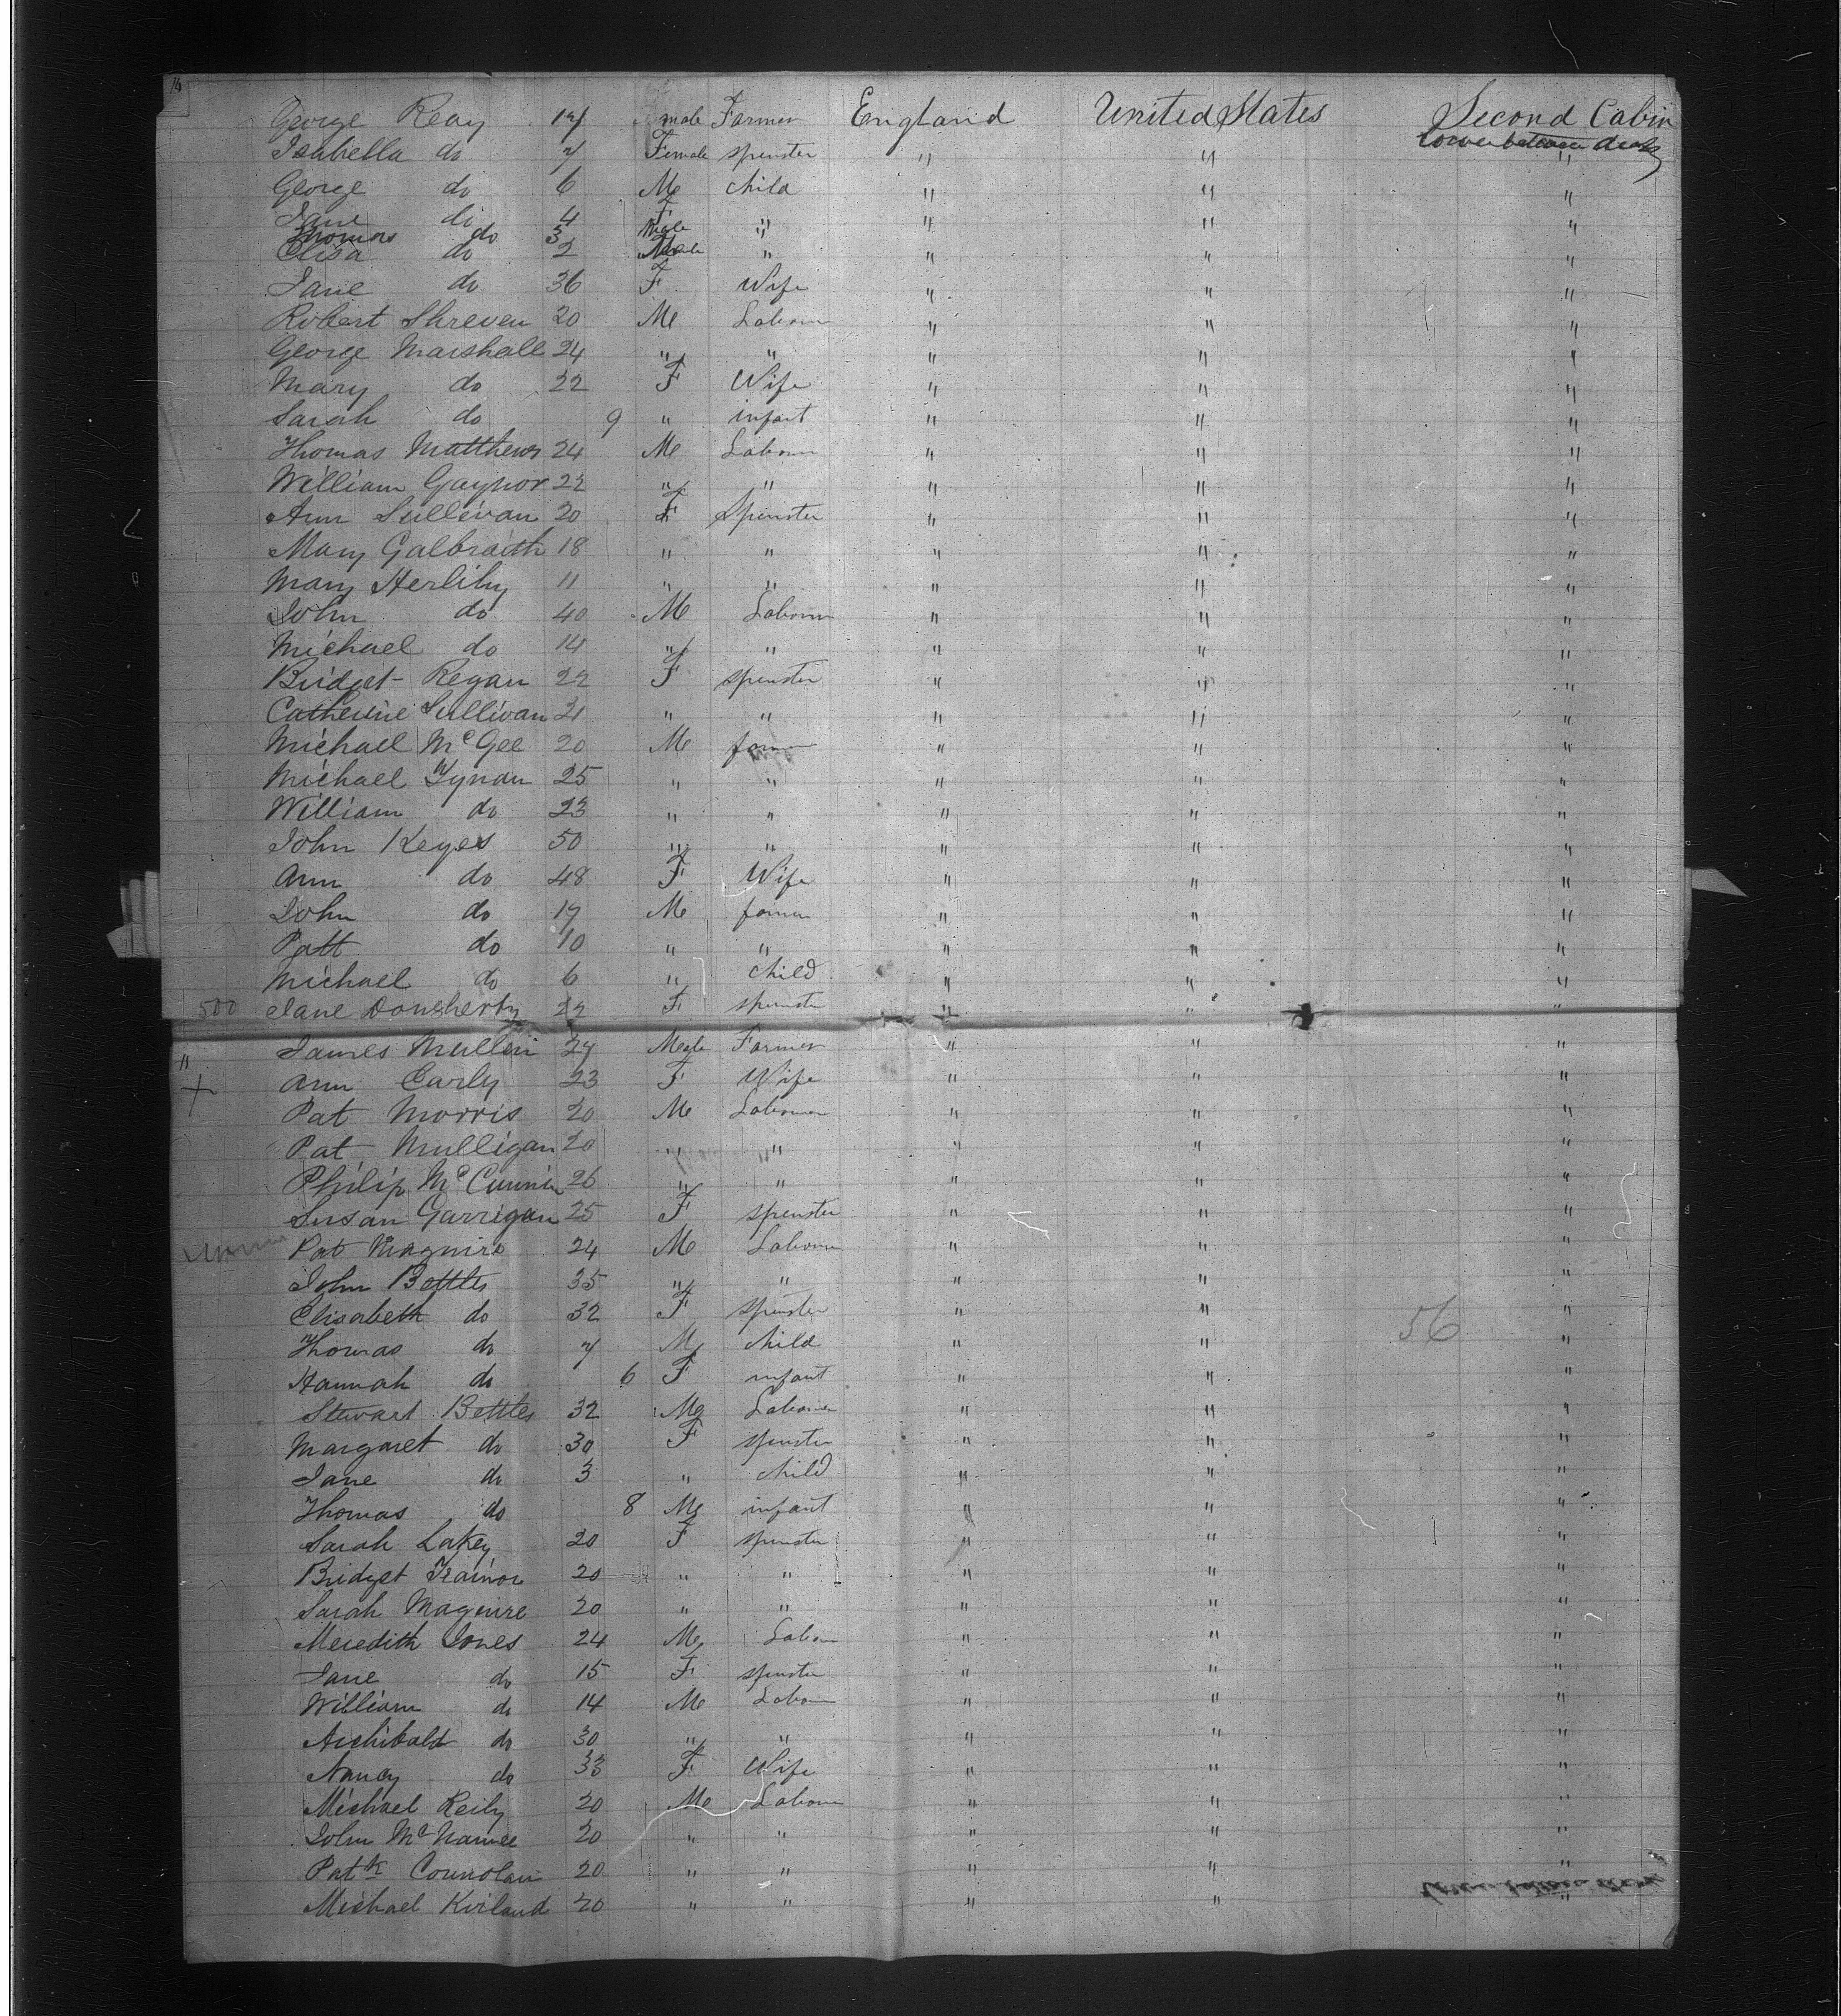 George Reay 17 male Farmer England United States Second Cabin
Isabella do 7 Female spinster " " lower between decks "
George do 6 M child " " "
Jane do 4 F " " " "
Thomas do 3 Male
Elisa do 2 " " " "
Jane do 36 F Wife " " "
Robert Shreven 20 M Labour " " "
George Marshall 24 " " " " "
Mary do 22 F Wife " " "
Sarah do 9 " infant " " "
Thomas Matthews 24 M Labour " " "
William Gaynor 22 " " " " "
Ann Sullivan 20 F Spinster " " "
Mary Galbraith 18 " " " " "
Mary Herlihy 11 " " " " "
John do 40 M Labour " " "
Michael do 14 " " " " "
Bridget Regan 22 F spinster " " "
Catherine Sullivan 21 " " " " "
Michael McGee 20 M farmer " " "
Michael Tynan 25 " " " " "
William do 23 " " " " "
John Keyes 50 " " " " "
Ann do 48 F Wife " " "
John do 17 M farmer " " "
Patt do 10 " " " " "
Michael do 6 " child " " "
500 Jane Dougherty 22 F spinster " " "
" James Mullen 27 Male Farmer " " "
+ Ann Carly 23 F Wife " " "
Pat Morris 20 M Labourer " " "
Pat Mulligan 20 " " " " "
Philip McCunnin 26 " " " " "
Susan Garrigan 25 F spinster " " "
Pat Maguire 24 M Labour " " "
John Bettles 35 " " " " "
Elisabeth do 32 F spinster " " 56 "
Thomas do 7 M child " " "
Hannah do 6 F infant " " "
Stewart Bettles 32 M Labourer " " "
Margaret do 30 F spinster " " "
Jane do 3 " child " " "
Thomas do 8 M infant " " "
Sarah Lakey 20 F spinster " " "
Bridget Trainor 20 " " " " "
Sarah Maguire 20 " " " " "
Meredith Jones 24 M Labour " " "
Jane do 15 F spinster " " "
William do 14 M Labour " " "
Archibald do 30 " " " " "
Nancy do 33 F Wife " " "
Michael Reily 20 M Labour " " "
John McNamee 20 " " " " "
Patk Connolan 20 " " " " "
Michael Kirland 20 " " " " lower between decks "